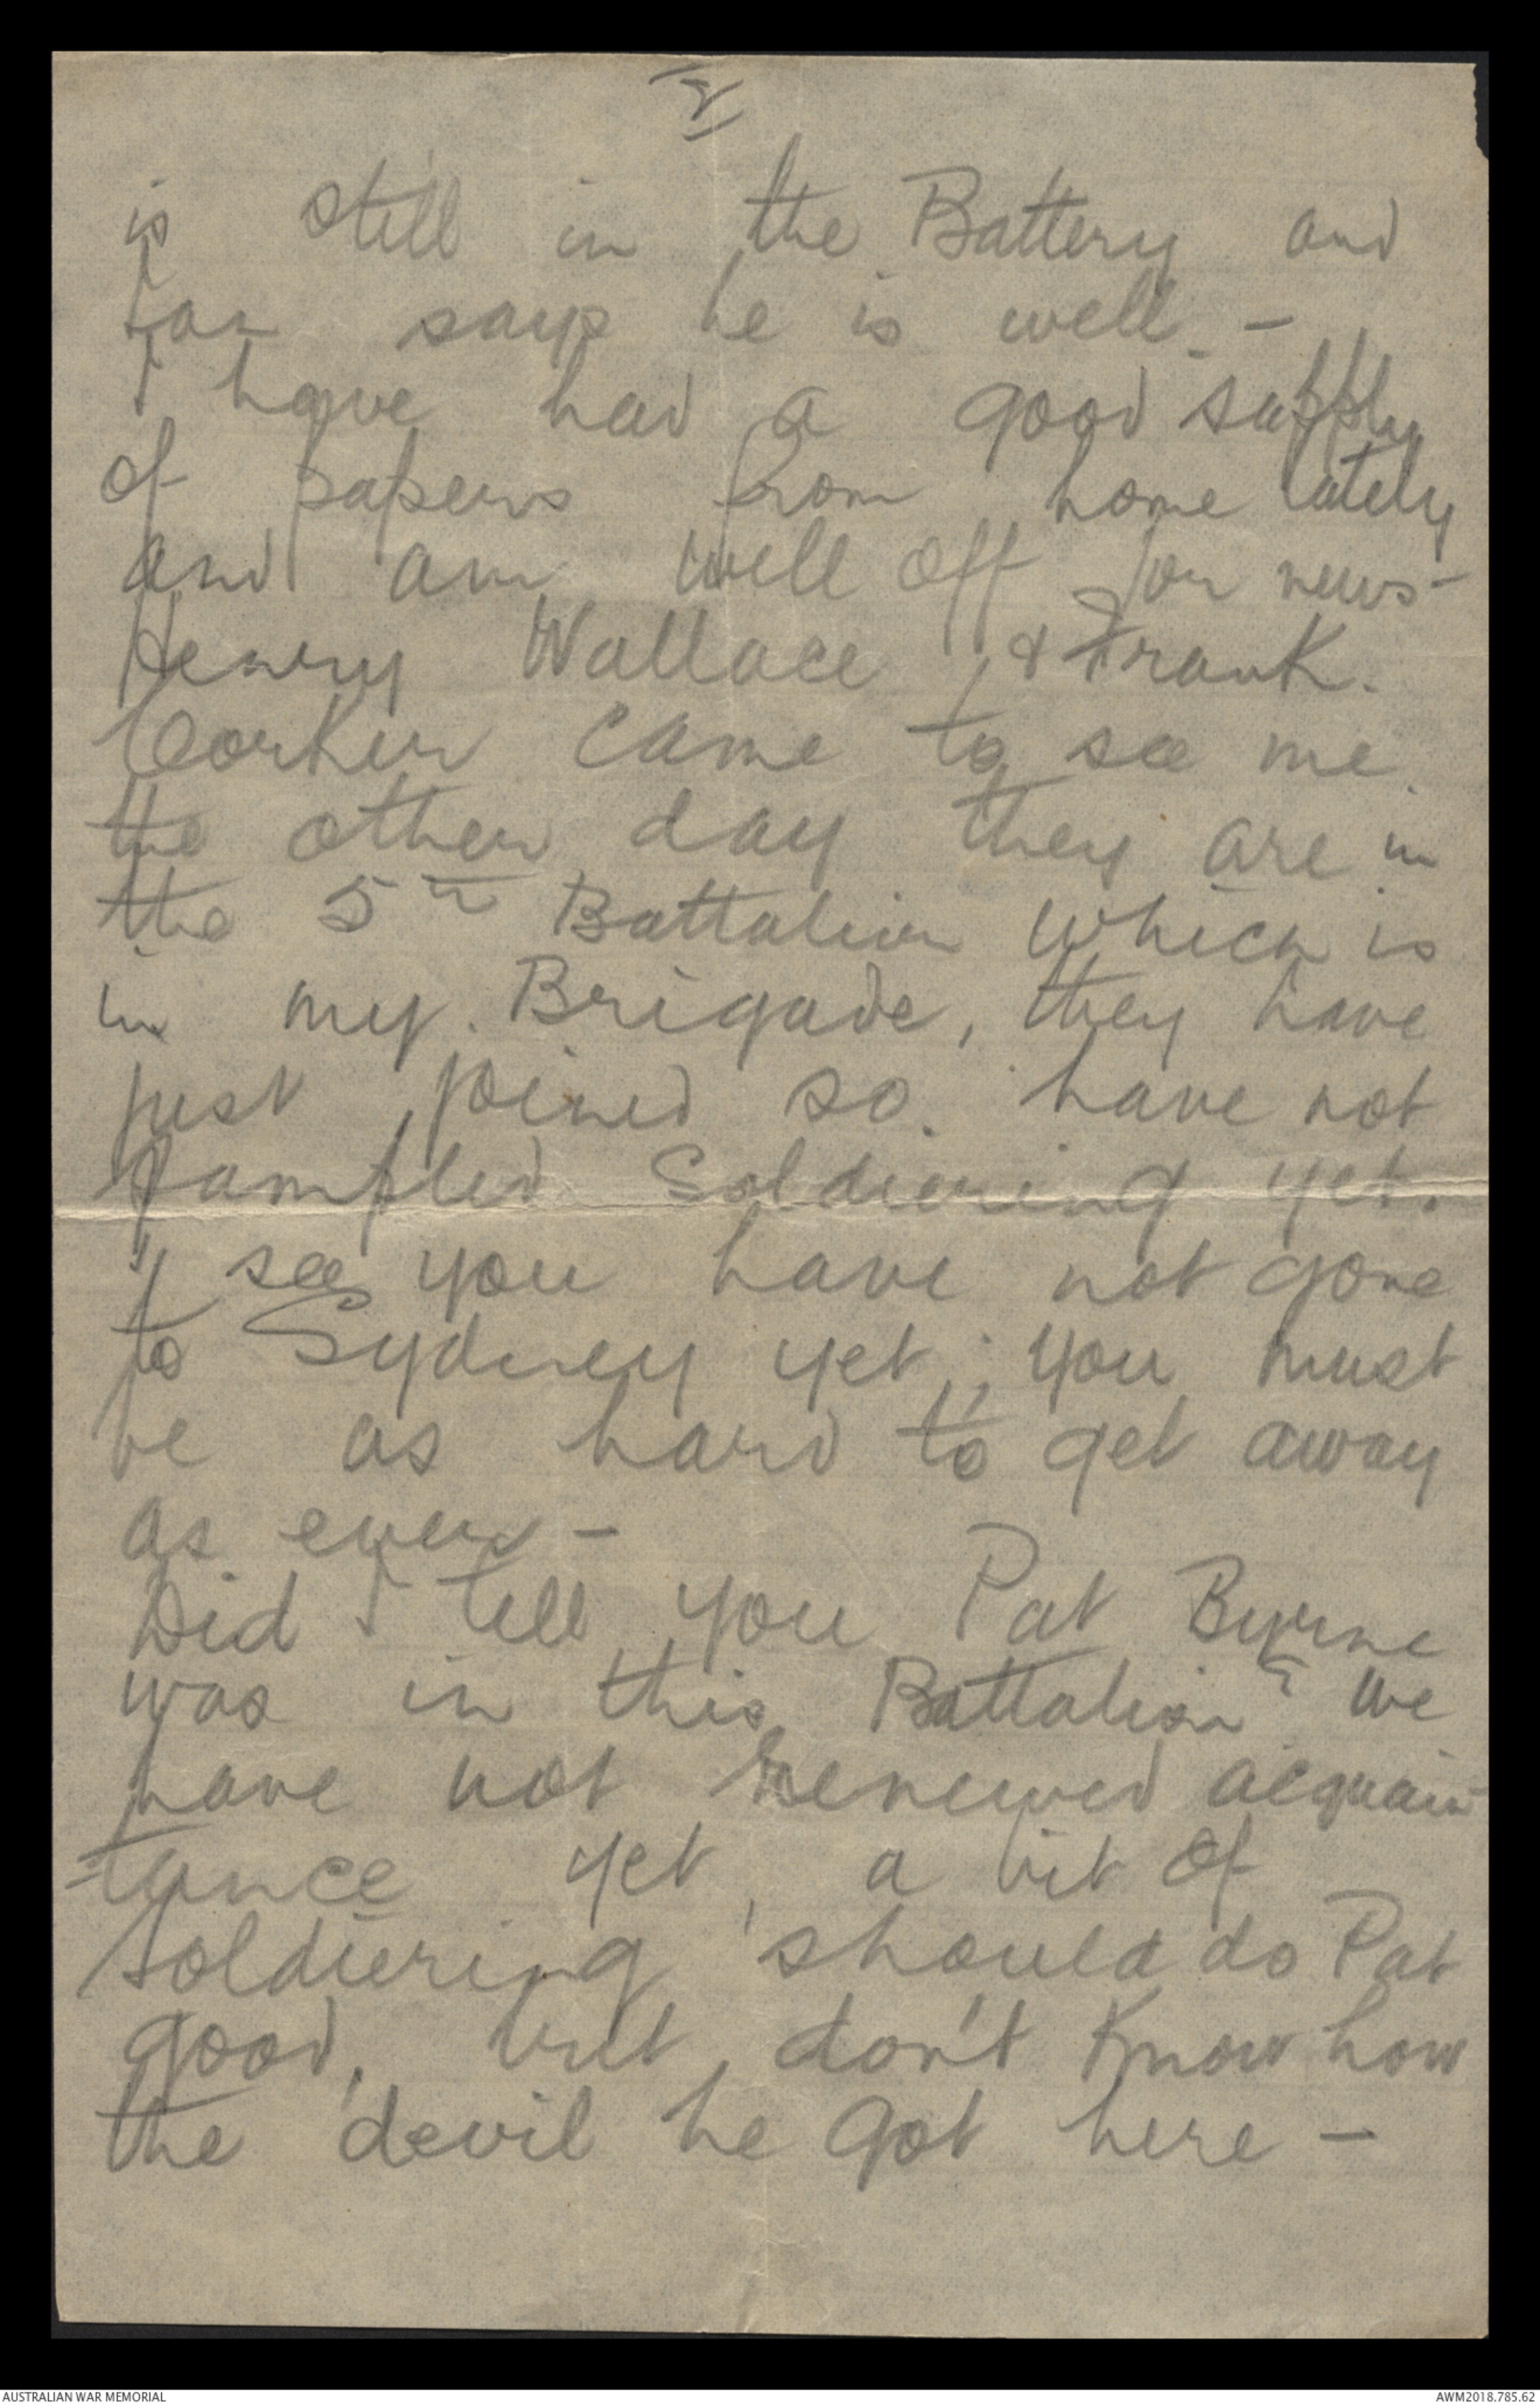 is still in the Battery and
Ian says he is well. -
I have had a good supply
of papers from home lately
and am well off for news -
Henry Wallace & Frank.
Corker came to see me
the other day they are in
the 5th Battalion which is
in my Brigade, they have
just joined so have not
sampled Soldiering yet.
I see you have not gone
to Sydney yet, you must
be as hard to get away
as ever -
Did I tell you Pat Byrne
was in this Battalion? we
have not renewed acquain-
tance yet, a bit of
soldiering should do Pat
good, but don't know how
the devil he got here -
AUSTRALIAN WAR MEMORIAL
AWM2018.785.62